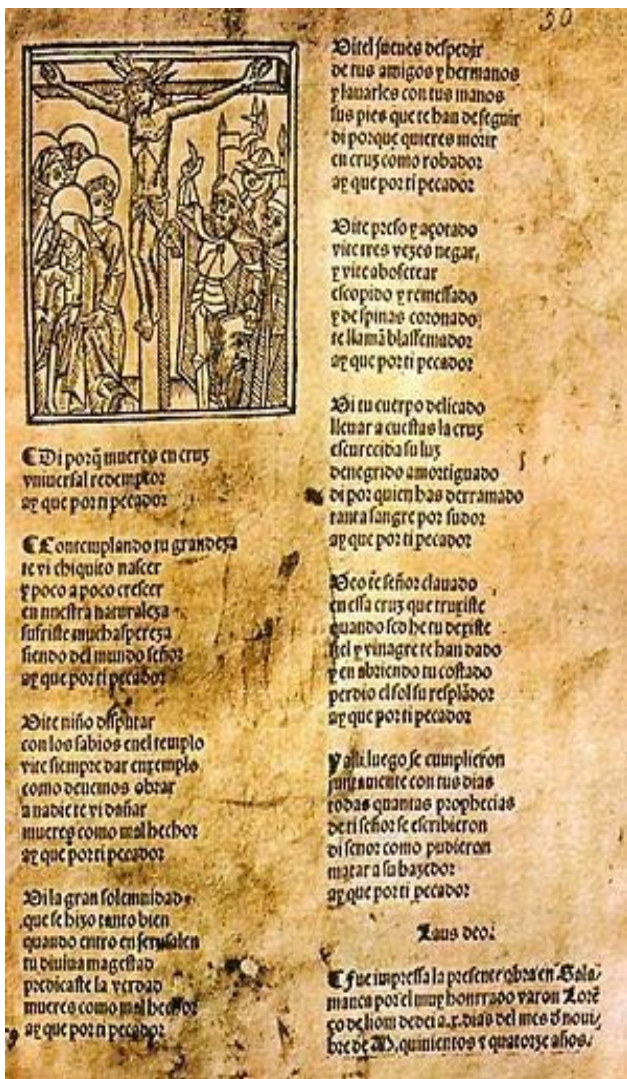 50
¶ Di porq̃ mueres en cruz
vniuersal redemptor
ay que por ti pecador
¶ Contemplando tu grandeza
te vi chiquito nascer
y poco a poco crescer
en nuestra naturaleza
sufriste mucha spereza
siendo del mundo señor
ay que por ti pecador
Uite niño disputar
con los sabios enel templo
vite siempre dar enxemplo
como deuemos obrar
a nadie te vi dañar
mueres como mal hechor
ay que por ti pecador
Ui la gran solemnidad
que se hizo tanto bien
quando entro en jerusalen
tu diuina magestad
predicaste la verdad
mueres como mal hechor
ay que por ti pecador
Uitel sueues despedir
de tus amigos y hermanos
y lauarles con tus manos
sus pies que te han de seguir
di porque quieres morir
en cruz como robador
ay que por ti pecador
Uite preso y açotado
vite tres vezes negar,
y vite abofetear
escopido y remessado
y de spinas coronado
te llamā blassemador
ay que por ti pecador
Ui tu cuerpo delicado
lleuar a cuestas la cruz
escurecida su luz
denegrido amortiguado
di por quien has derramado
tanta sangre por sudor
ay que por ti pecador
Ueo te señor clauado
en essa cruz que truxiste
quando sed he tu dexiste
fiel y vinagre te han dado
y en abriendo tu costado
perdio el sol su resplādor
ay que por ti pecador
y alli luego se cumplieron
juntamente con tus dias
todas quantas prophecias
de ti señor se escribieron
di senor como pudieron
matar a su hazedor
ay que por ti pecador
Laus deo.
¶ Fue impressa la presente obra en Sala/
manca por el muy honrrado varon Lorē
ço de liom dedei a.x. dias del mes d̄ noui/
bre de M. quinientos y quatorze años.